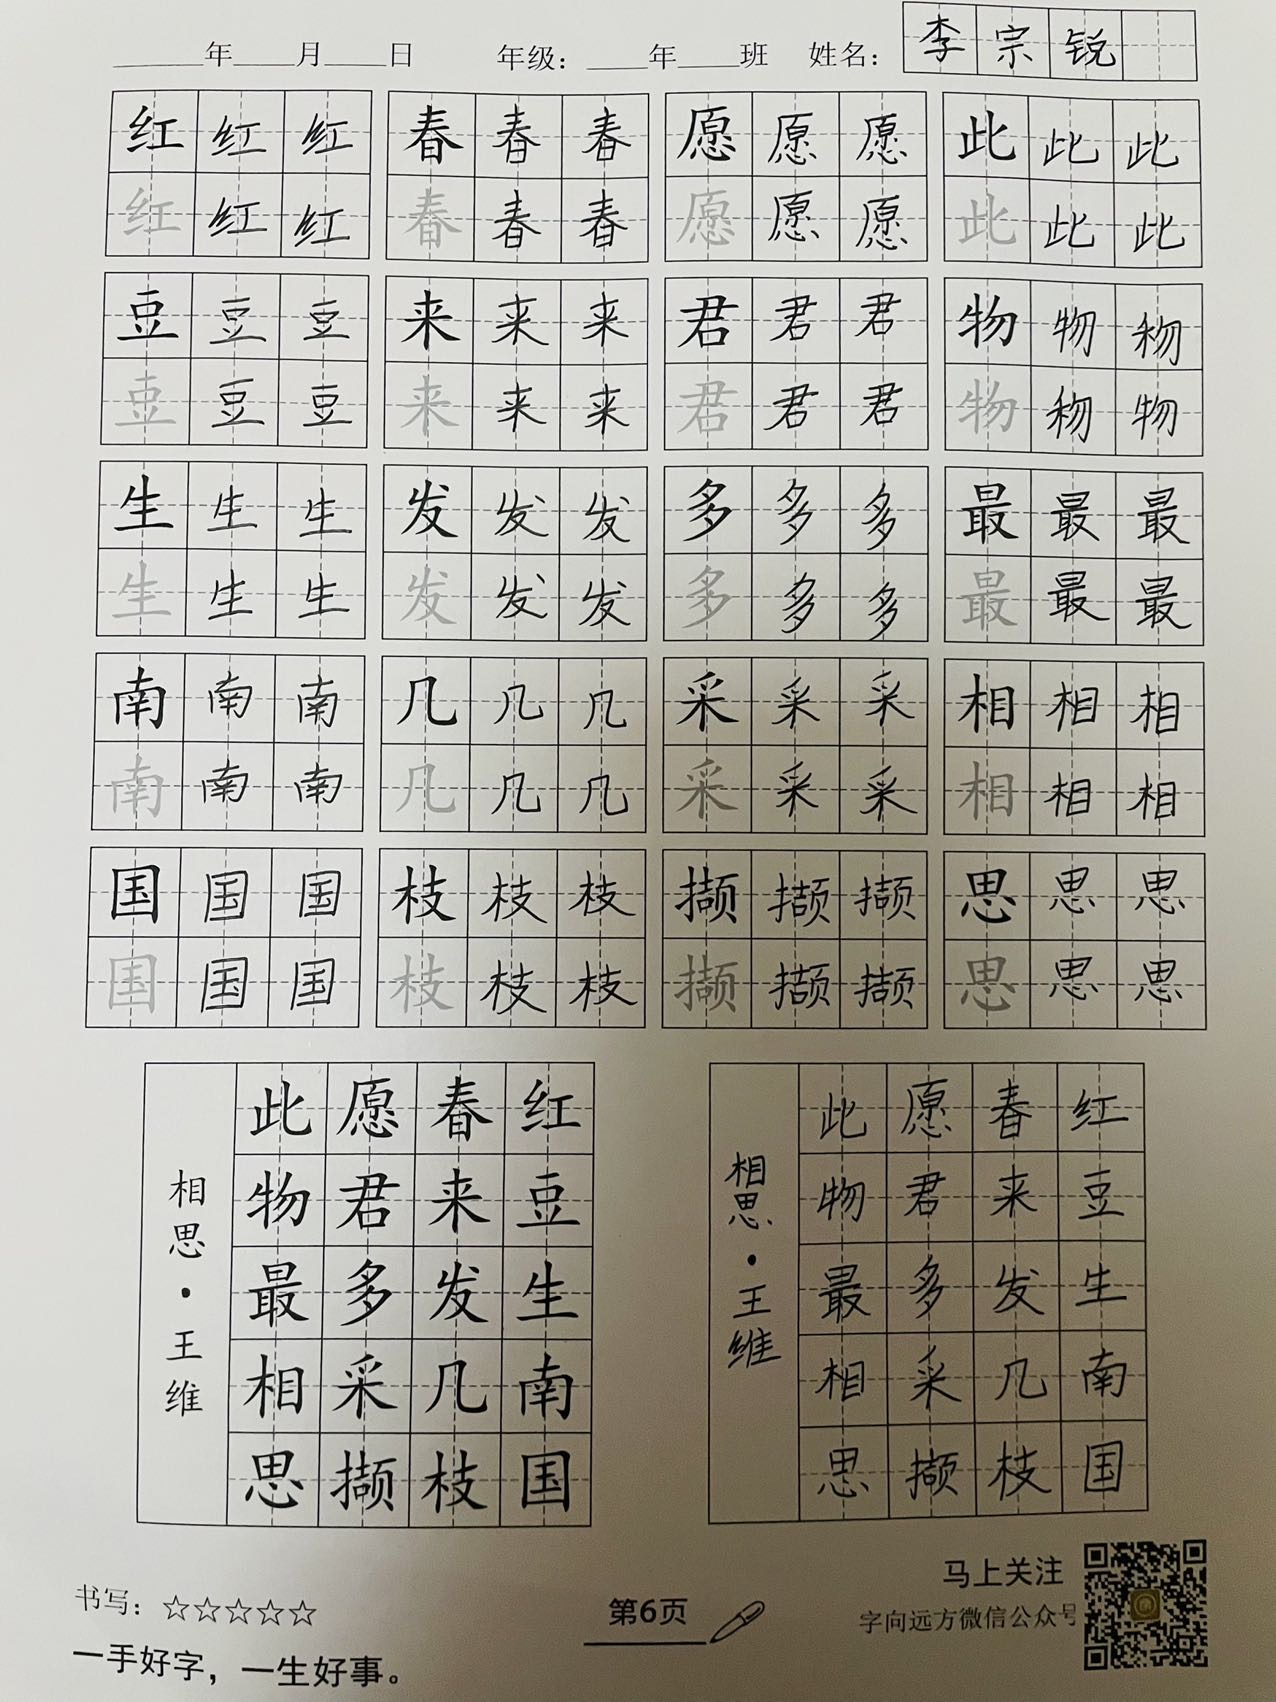 ____年____月____日 年级：____年____班 姓名：李宗锐
红红红 春春春 愿愿愿 此此此
红红红 春春春 愿愿愿 此此此
豆豆豆 来来来 君君君 物物物
豆豆豆 来来来 君君君 物物物
生生生 发发发 多多多 最最最
生生生 发发发 多多多 最最最
南南南 几几几 采采采 相相相
南南南 几几几 采采采 相相相
国国国 枝枝枝 撷撷撷 思思思
国国国 枝枝枝 撷撷撷 思思思
红豆生南国
春来发几枝
愿君多采撷
此物最相思
相思·王维
红豆生南国
春来发几枝
愿君多采撷
此物最相思
相思·王维
书写：☆☆☆☆☆
一手好字，一生好事。
第6页
马上关注
字向远方微信公众号